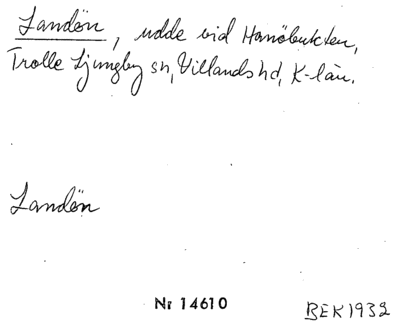 Landön, udde vid Hanöbukten,
Trolle Ljungby sn, Villands hd, K-län.
Landön
Nr 14610
BEK 1932